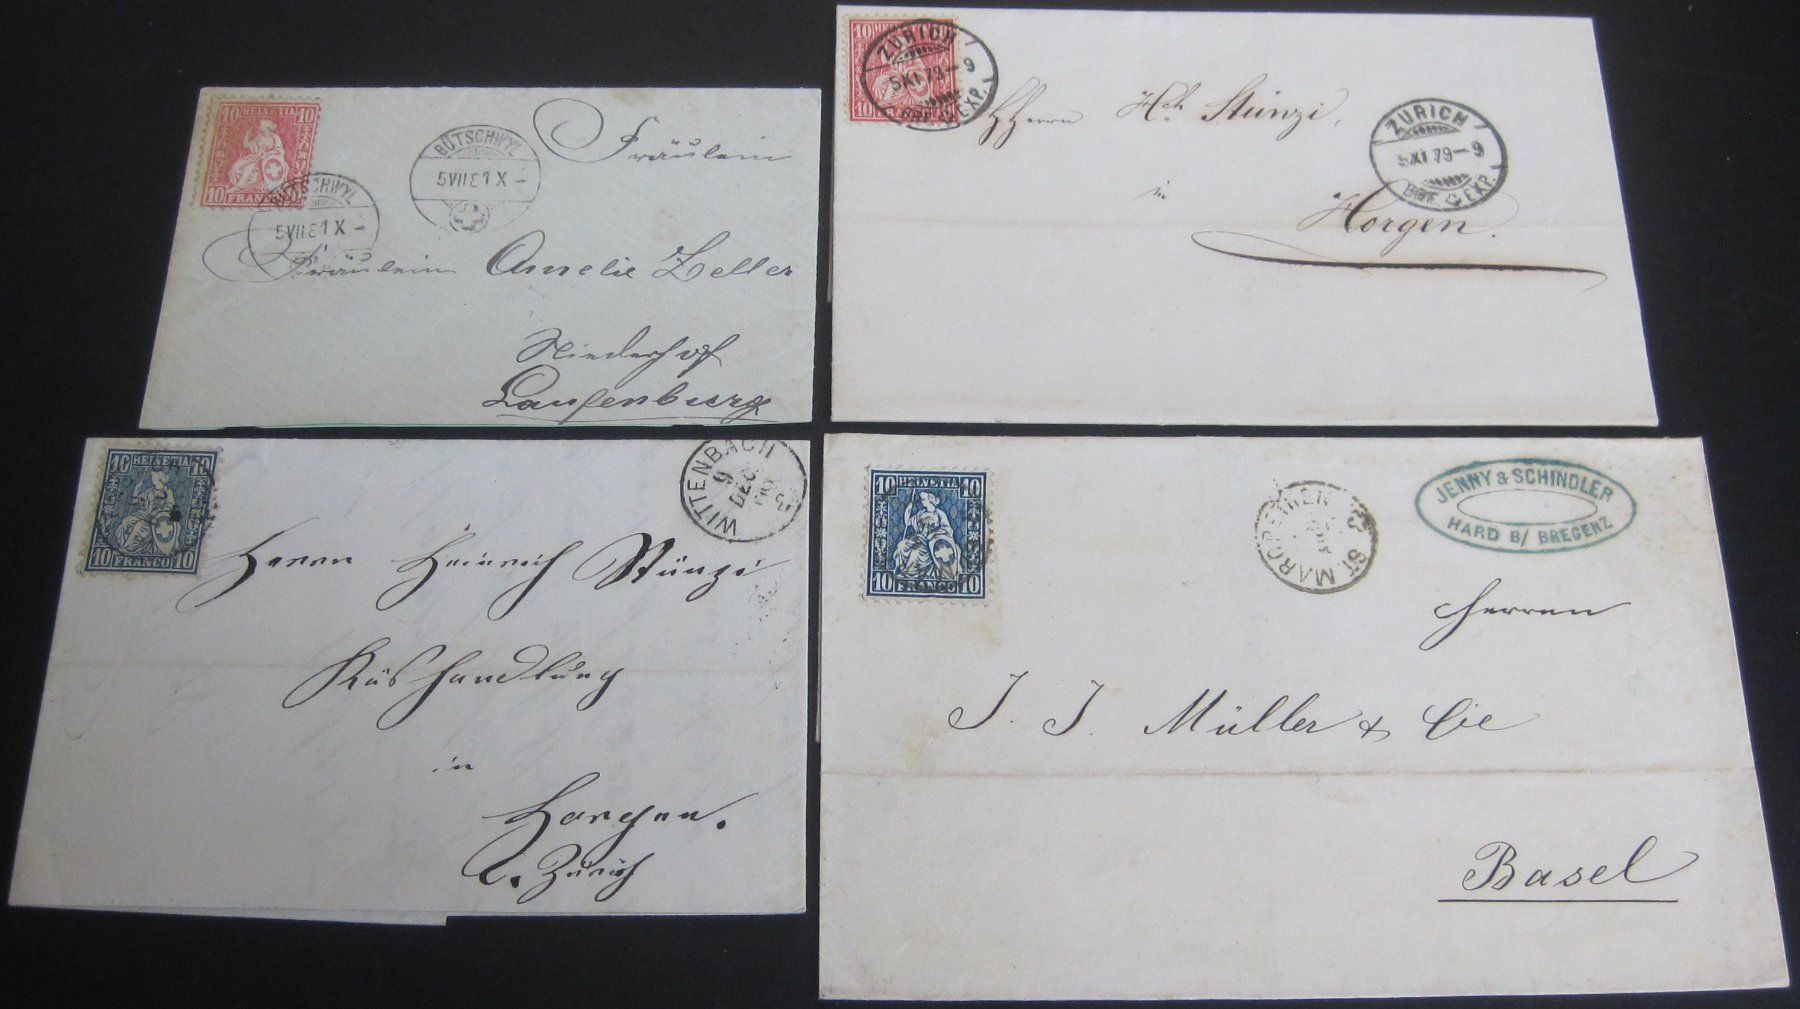 10 HELVETIA 10
10 FRANCO 10
BÜTSCHWYL
5 VII 81 X –
BÜTSCHWYL
5 VII 81 X –
Fräulein
Fräulein Amelie Zeller
Niederhof
Laufenburg
10 HELVETIA
10
ZÜRICH
5 XI 79 – 9
BRF. EXP.
ZÜRICH
5 XI 79 – 9
BRF. EXP.
HHerrn Hch Stünzi,
in
Horgen.
10 HELVETIA 10
10 FRANCO 10
WITTENBACH
9
DEC
Herrn Heinrich Stünzi
Käshandlung
in
Horgen.
C. Zürich
10 HELVETIA 10
10 FRANCO 10
ST. MARGRETHEN
JENNY & SCHINDLER
HARD B/ BREGENZ
Herren
J. J. Müller & Cie
Basel